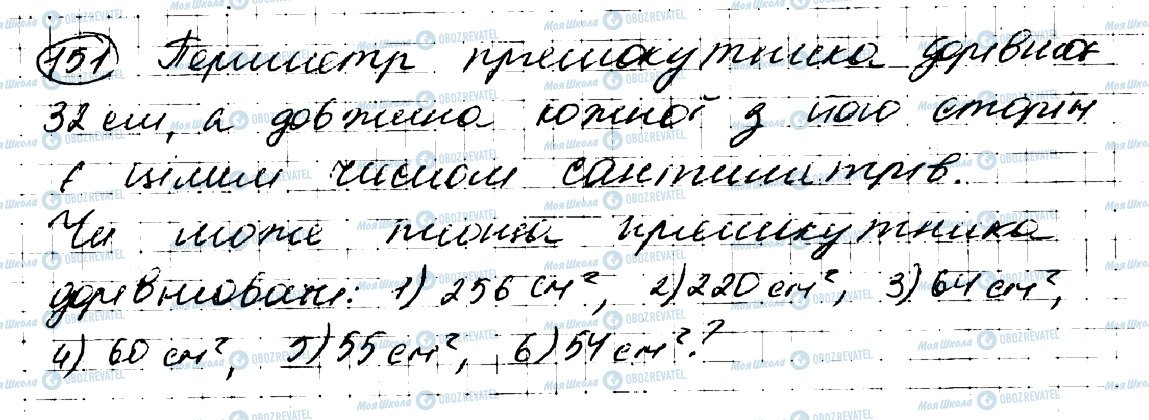 151 Периметр прямокутника дорівнює
32 см, а довжина кожної з його сторін
є цілим числом сантиметрів.
Чи може площа прямокутника
дорівнювати: 1) 256 см², 2) 220 см², 3) 64 см²,
4) 60 см², 5) 55 см², 6) 54 см²?